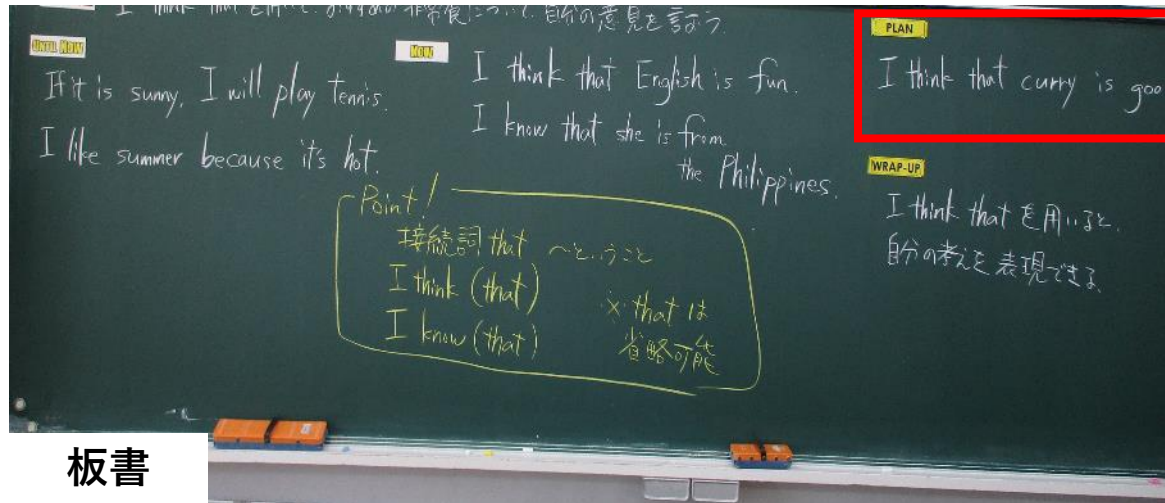 I think that を用いて、おすすめの非常食について、自分の意見を言おう。
UNTIL NOW
If it is sunny, I will play tennis.
I like summer because it's hot.
NOW
I think that English is fun.
I know that she is from
the Philippines.
Point!
接続詞 that ~ということ
I think (that)
I know (that)
※ that は
省略可能
PLAN
I think that curry is goo
WRAP-UP
I think that を用いると、
自分の考えを表現できる。
板書